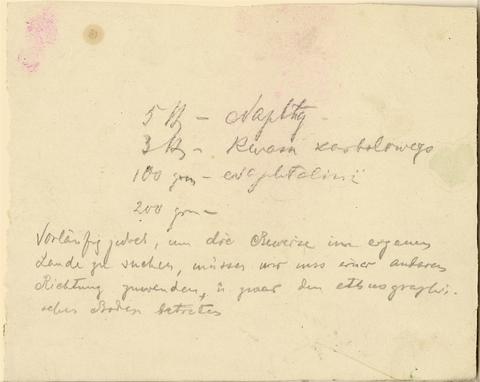 5 kg — Nafty
3 kg — Kwasu karbolowego
100 gm — naphtalini
200 gm —
Vorläufig jedoch, um die Beweise im eigenen
Lande zu suchen, müssen wir uns einer anderen
Richtung zuwenden, u. zwar den ethnographi-
schen Boden betreten